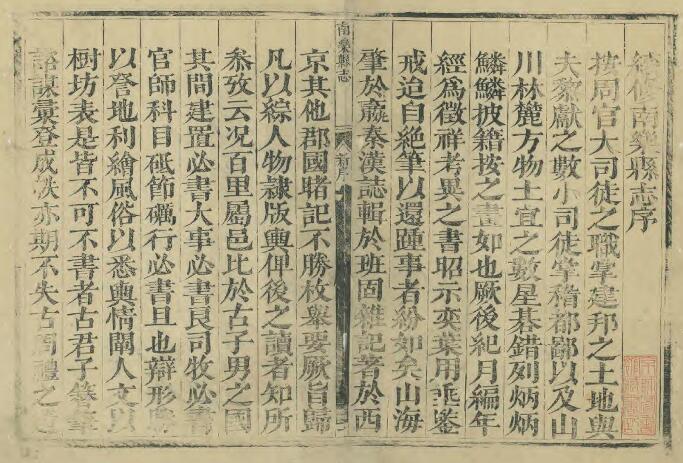 續修南樂縣志序
按周官大司徒之職掌建邦之土地與
夫黎獻之數小司徒掌稽都鄙以及山
川林麓方物土宜之數星碁錯列炳炳
鱗鱗披籍按之畫如也厥後紀月編年
經爲徵祥考異之書昭示奕葉用垂鑒
戒迨自絕筆以還踵事者紛如矣山海
肇於嬴秦漢誌輯於班固雜記著於西
南樂縣志
序
京其他郡國睹記不勝枚舉要厥旨歸
凡以綜人物隸版輿俾後之讀者知所
叅攷云况百里屬邑比於古子男之國
其間建置必書大事必書良司牧必書
官師科目砥節礪行必書且也辯形
以詧地利繪風俗以悉輿情闡人文以
樹坊表是皆不可不書者古君子
諮謀彙登成帙亦期不失古周禮之